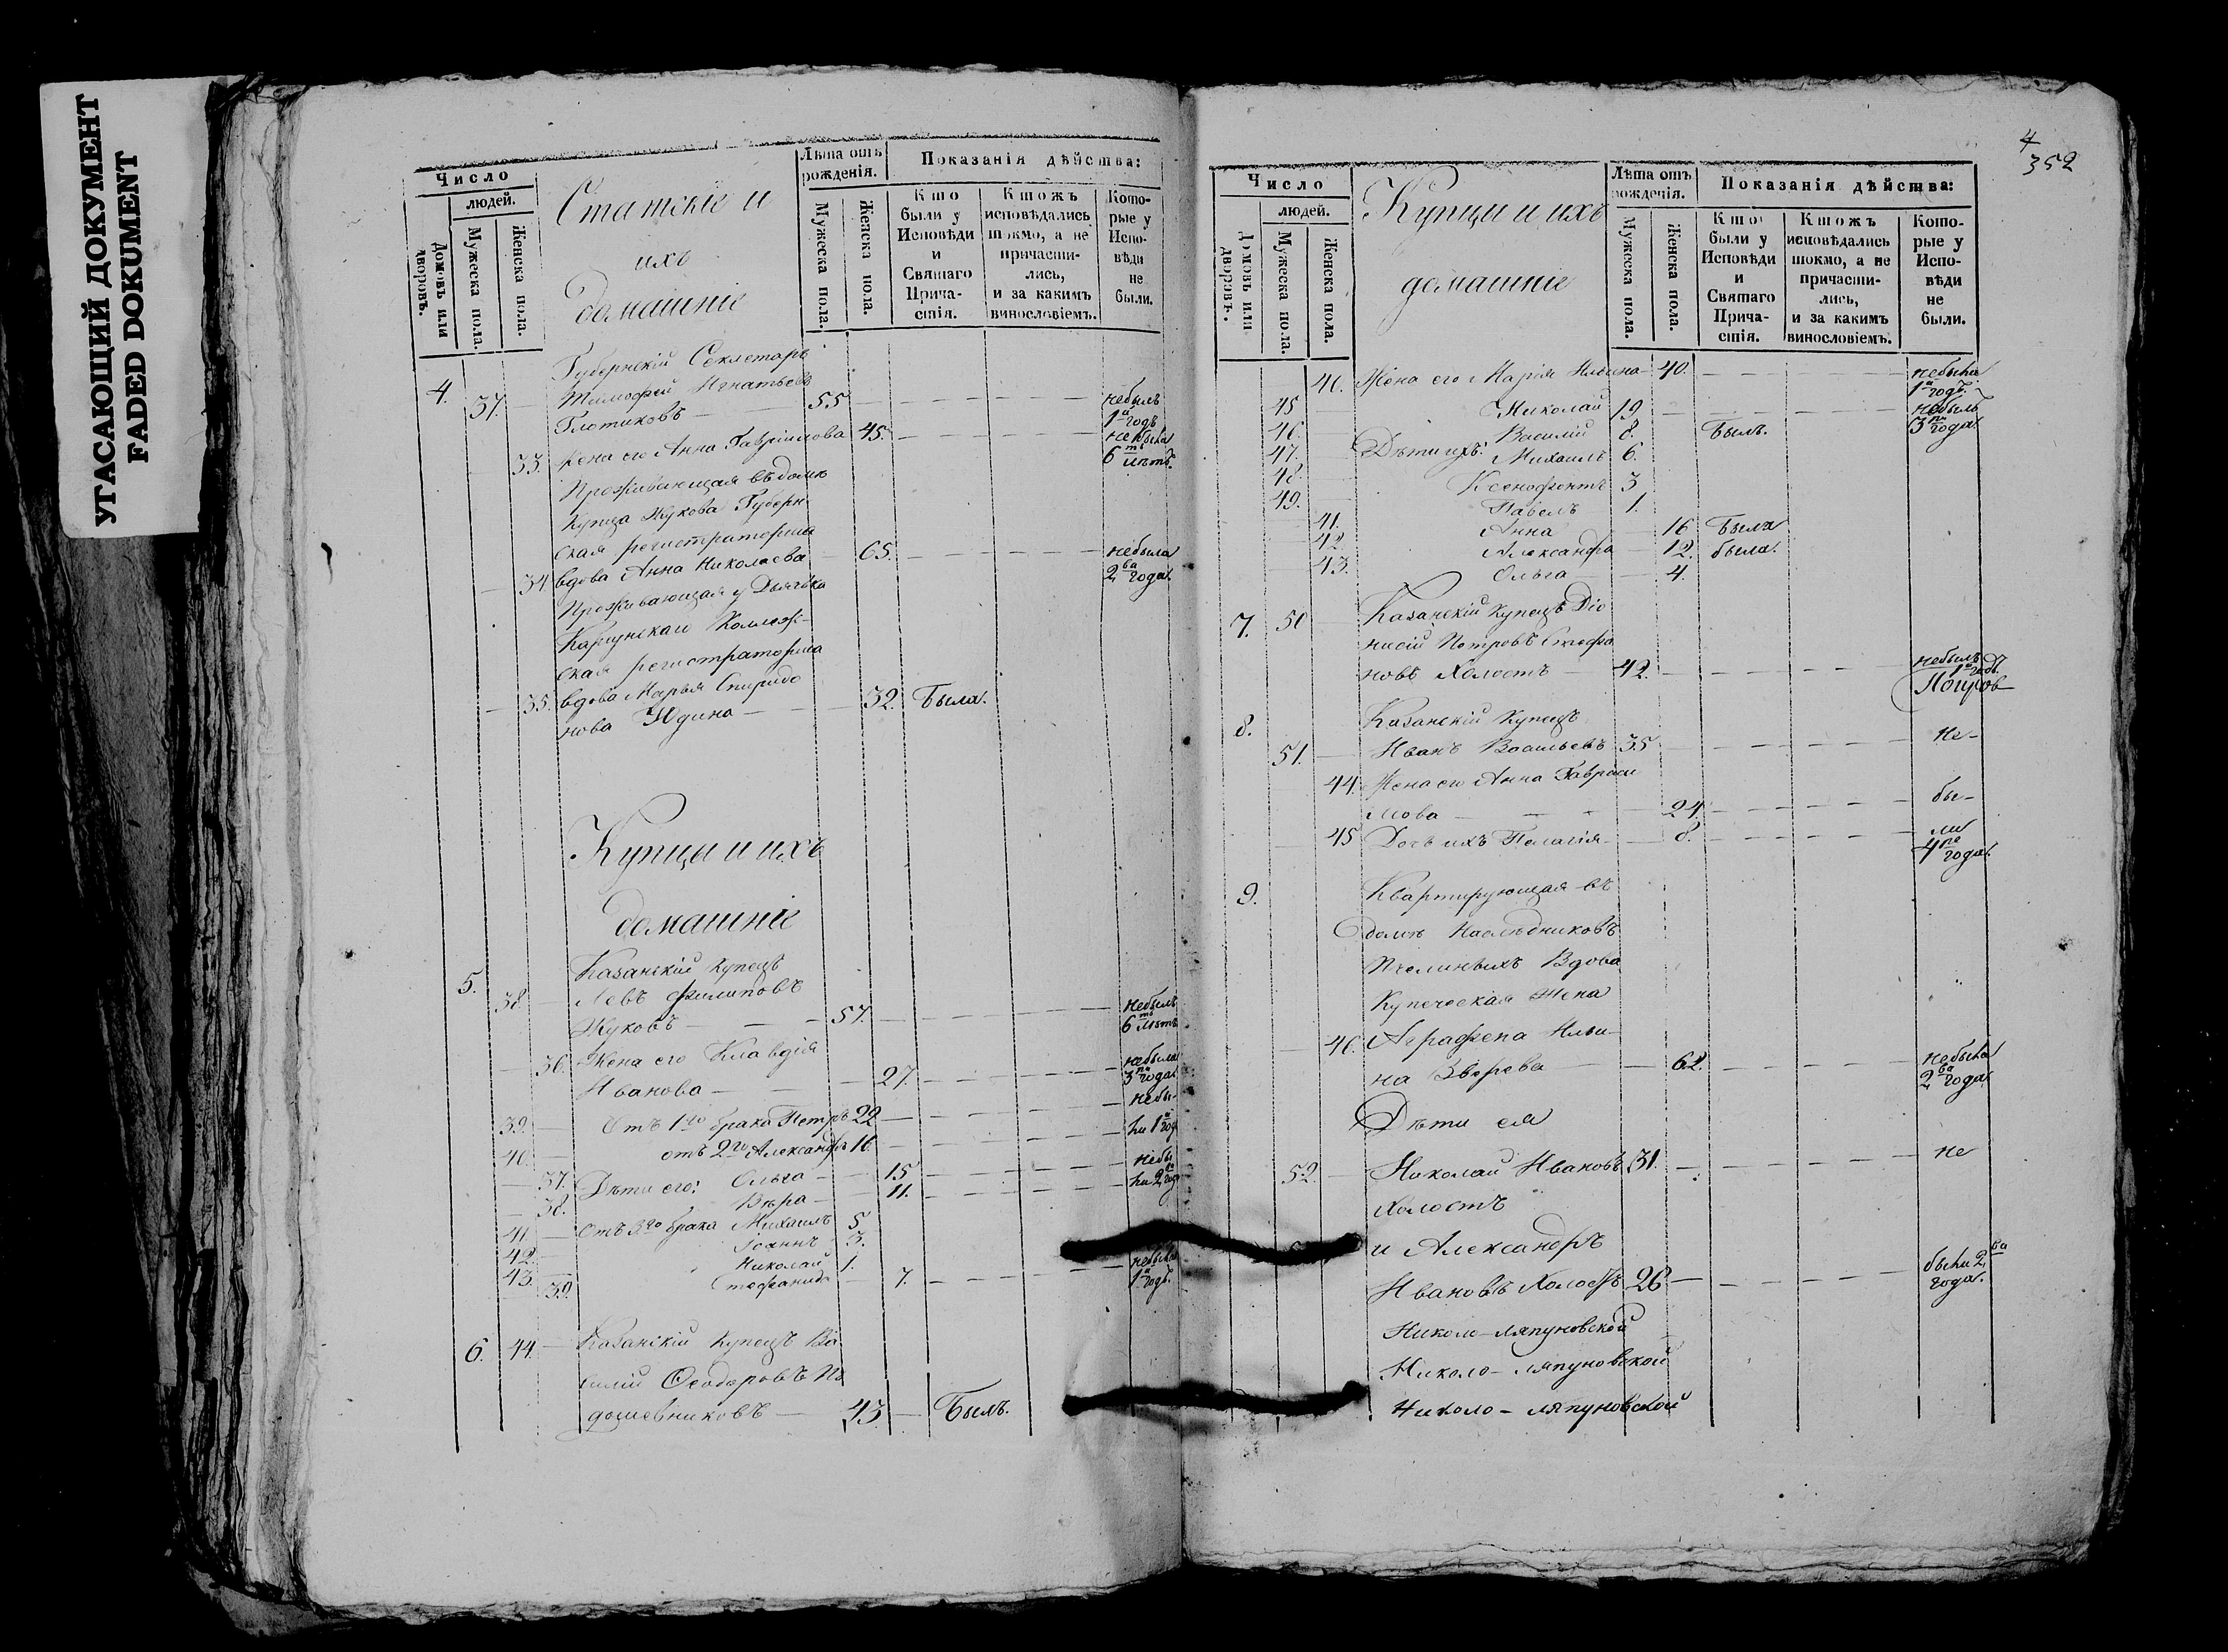 УГАСАЮЩИЙ ДОКУМЕНТ
FADED DOKUMENT
Число
людей.
Домовъ или дворовъ.
Мужеска пола.
Женска пола.
Статскіе и
ихъ
домашніе
Лѣта отъ рожденія.
Мужеска пола.
Женска пола.
Показанія дѣйства:
Кто были у Исповѣди и Святаго Прича-стія.
Ктожъ исповѣдались токмо, а не причасти-лись, и за какимъ винословіемъ.
Кото-рые у Испо-вѣди не были.
Губернскій Секлетарь
4. 37. Тимофей Игнатьевъ
Глотиковъ — 55 — небылъ 1й годъ
33. Жена его Анна Гавріилова 45. — небыла 6ть лѣтъ.
Проживающая въ домѣ
Купца Жукова Губерн-
ская регистраторша
34. вдова Анна Николаева — 65. — небыла 2ва года.
Проживающая у Дьячка
Каргунскаго Коллеж-
ская регистраторша
35. вдова Марья Спиридо
нова Юдина — 32. Была.
Купцы и ихъ
домашніе
5. Казанскій Купецъ
38 — Левъ Филиповъ
Жуковъ — — 57. — небылъ 6ть лѣтъ
36. Жена его Клавдія
Иванова — — 27. — небыла 3ри года.
39. — Отъ 1го брака Петръ 22 — небы-
40. — отъ 2го Александръ 16. — ли 1й год
37. Дѣти его: Ольга — 15 — небы
38. Вѣра — 11. — ли 2ва год
41 — Отъ 3го брака Михаилъ 5
42. — Іоаннъ 3.
43. — Николай 1.
39. Стефанида — 7. — небыла 1й годъ.
6. 44. — Казанскій Купецъ Ва
силій Ѳеодоровъ По
дошевниковъ — 43 — Былъ.
4
352
Число
людей.
Домовъ или дворовъ.
Мужеска пола.
Женска пола.
Купцы и ихъ
домашніе
Лѣта отъ рожденія.
Мужеска пола.
Женска пола.
Показанія дѣйства:
Кто были у Исповѣди и Святаго Прича-стія.
Ктожъ исповѣдались токмо, а не причасти-лись, и за какимъ винословіемъ.
Кото-рые у Испо-вѣди не были.
40. Жена его Марія Ильина — 40. — небыла 1й годъ.
45 Николай 19 — небылъ 3ри года.
46. — Василій 8. Былъ.
47. — Дѣти ихъ: Михаилъ 6.
48. Ксенофонтъ 3
49. Павелъ 1.
41. Анна — 16 Была
42. Александра — 12. была.
43. Ольга — 4.
7. 50 — Казанскій Купецъ Діо
нисій Петровъ Стефа
новъ Холостъ — 42. — небылъ 1й годъ.
8. Казанскій Купецъ
51. — Иванъ Васильевъ 35 — не-
44. Жена его Анна Гавріи
лова — — 24. — бы-
45 Дочь ихъ Пелагія — 8. — ли
4ре года.
9. Квартирующая въ
домѣ Наслѣдниковъ
Пчелиныхъ Вдова
Купеческая Жена
46. Аграфена Ильи-
на Звѣрева — 62. — небыла 2ва года
Дѣти ея
52. — Николай Ивановъ 31. — не
Холостъ
и Александръ
Ивановъ Холостъ 26 — были 2ва года.
Николо-ляпуновской
Николо-ляпуновской
Николо-ляпуновской